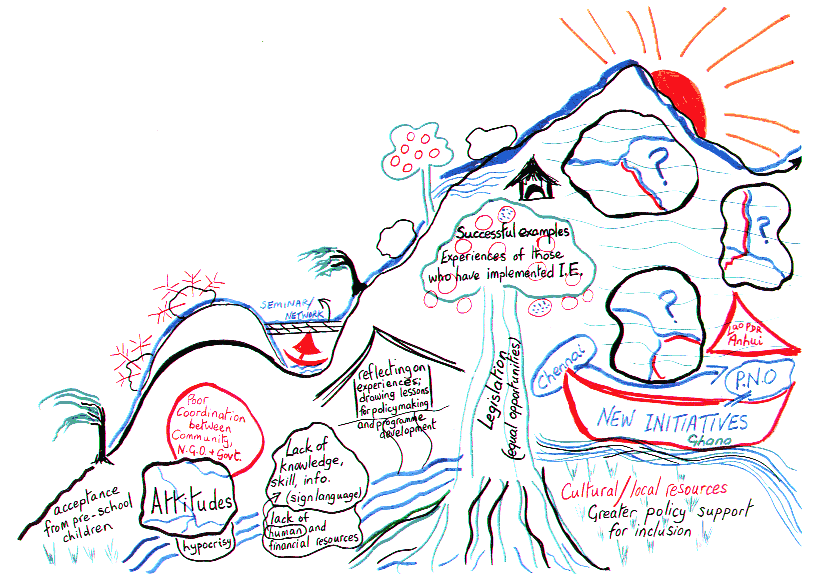 ?
?
?
Successful examples
Experiences of those
who have implemented I.E.
SEMINAR/
NETWORK
Lao PDR
Anhui
Chennai
P.N.O
NEW INITIATIVES
Ghana
reflecting on
experiences;
drawing lessons
for policymaking
and programme
development
Legislation
(equal opportunities)
Poor
Coordination
between
Community,
N.G.O. + Govt.
Lack of
knowledge,
skill, info.
(sign language)
lack of
human and
financial resources
Attitudes
hypocrisy
acceptance
from pre-school
children
Cultural/local resources
Greater policy support
for inclusion